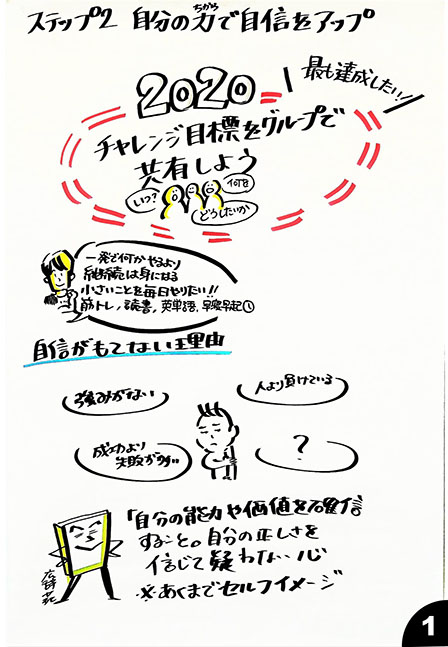 ステップ2 自分の力で自信をアップ
ちから
最も達成したい!
2020
チャレンジ目標をグループで
共有しよう
いつ?
何を
どうしたいか
一発で何かやるより
継続は身になる
小さいことを毎日やりたい!!
筋トレ,読書,英単語,早寝早起
自信がもてない理由
強みがない
人より負けている
成功より
失敗が多い
?
「自分の能力や価値を確信
すること。自分の正しさを
信じて疑わない心
※あくまでセルフイメージ
広辞苑
1